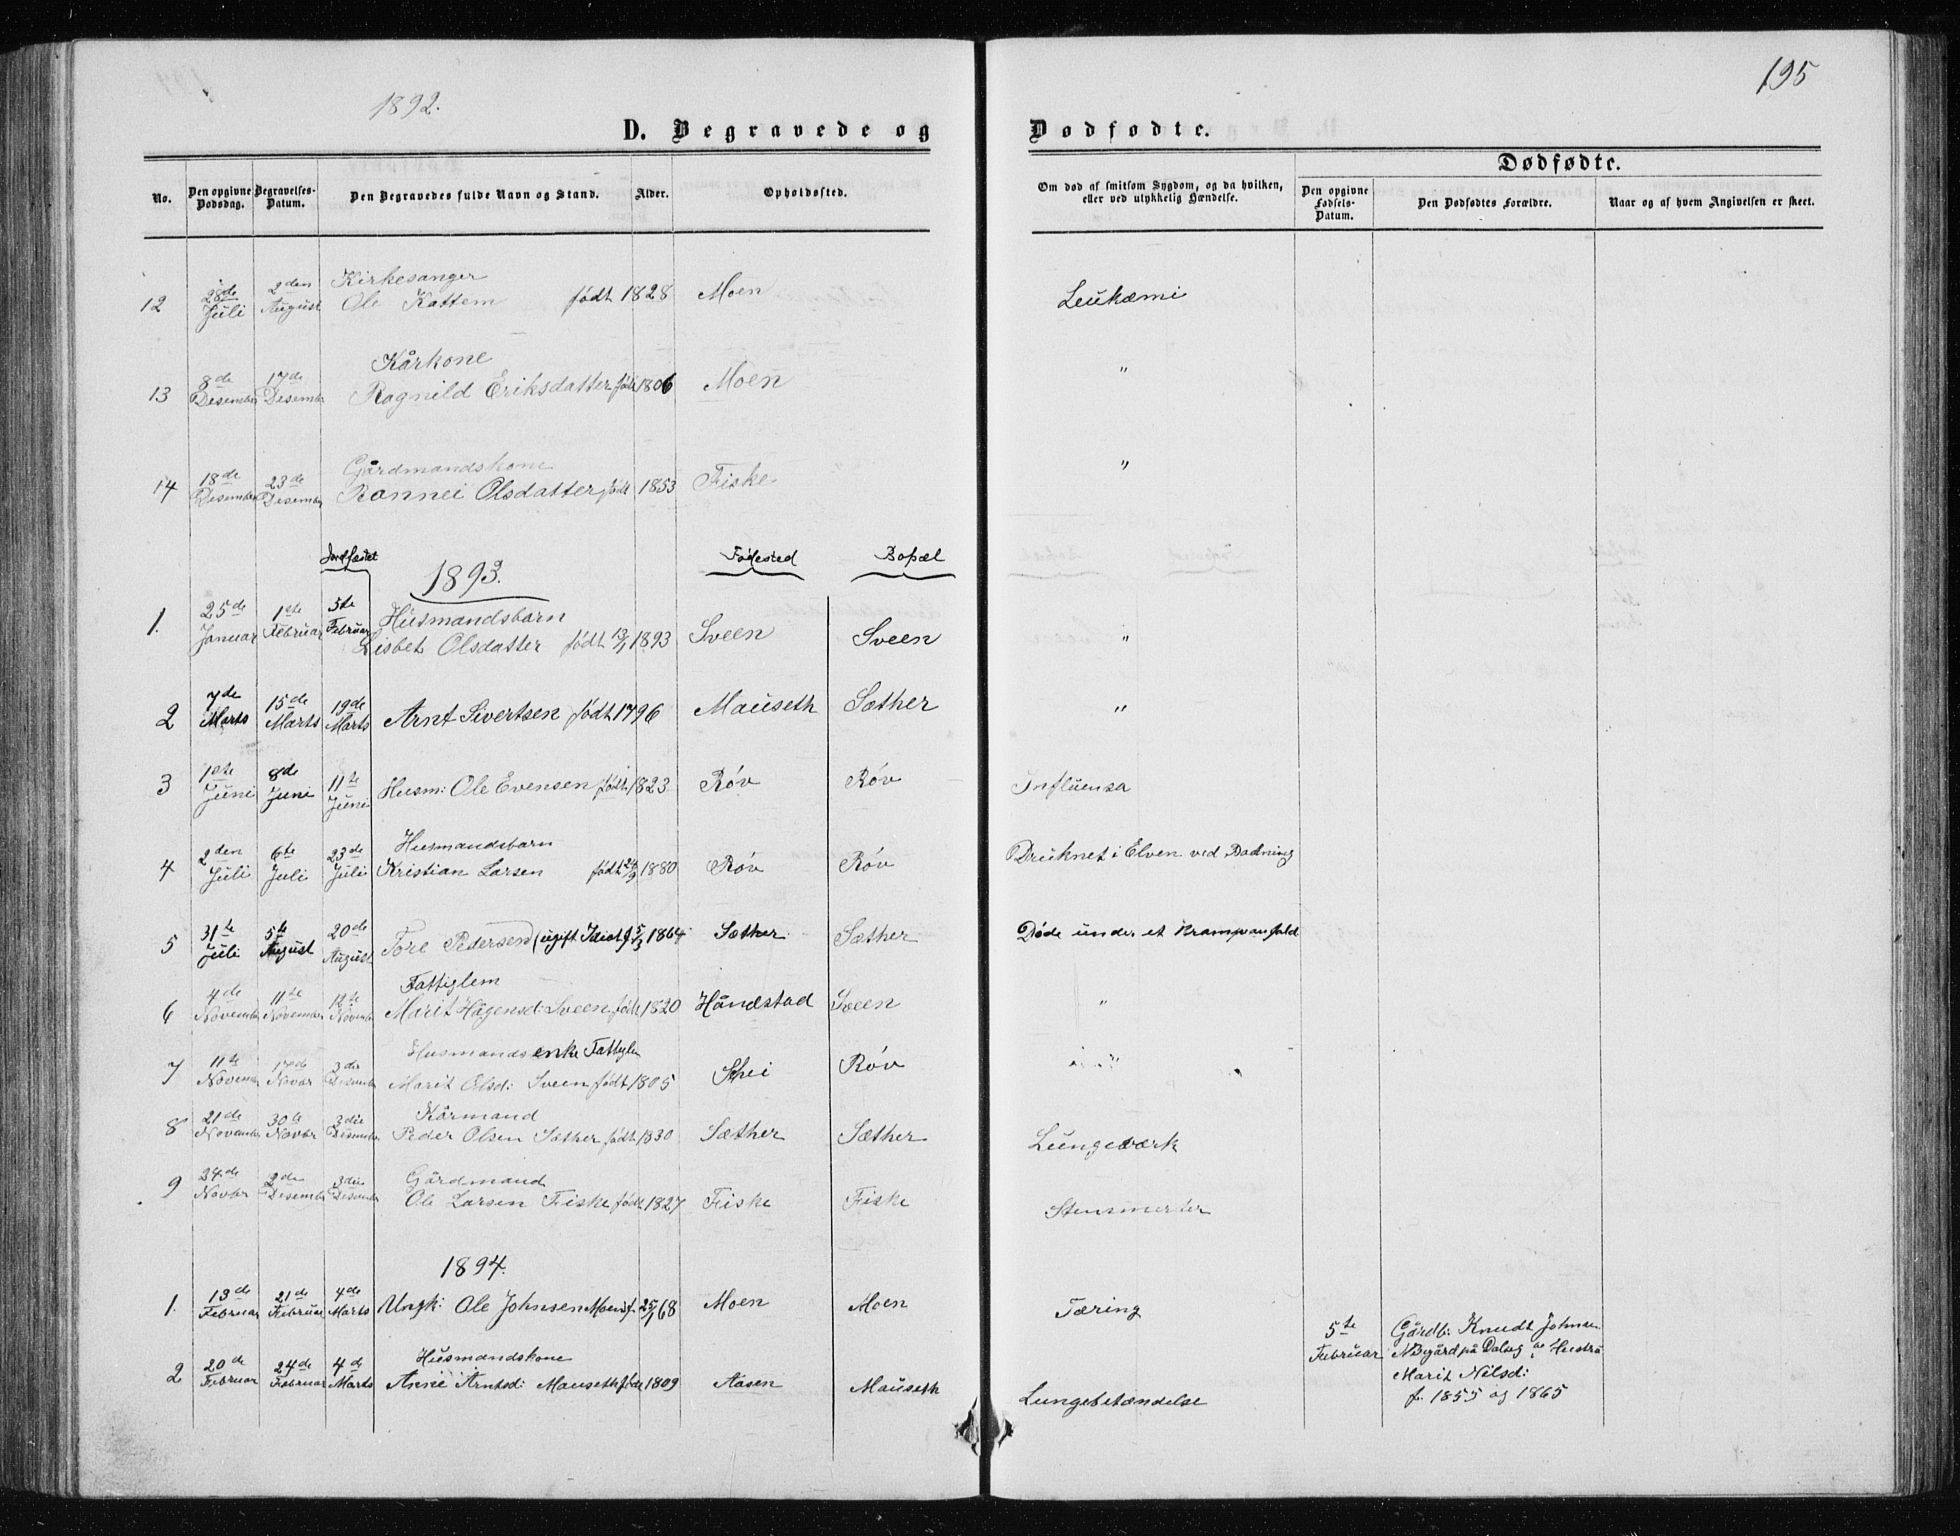 1892.
195
D. Begravede og Dødfødte.
No. | Den opgivne Dødsdag. | Begravelses-Datum. | Den Begravedes fulde Navn og Stand. | Alder. | Opholdssted. | Om død af smitsom Sygdom, og da hvilken, eller ved ulykkelig Hændelse. | Dødfødte. | Den opgivne Fødsels-Datum. | Den Dødfødtes Forældre. | Naar og af hvem Angivelsen er skeet.
12 | 28de Juli | 2den August | Kirkesanger Ole Kattem født | 1828 | Moen | Leukæmi
13 | 8de Desember | 17de Desember | Kårkone Ragnild Eriksdatter født | 1806 | Moen | "
14 | 18de Desember | 23de Desember | Gårdmandskone Rannei Olsdatter født | 1853 | Fiske | "
Jordfæstet | 1893. | Fødested | Bopæl
1. | 25de Januar | 1ste Februar | 5te Februar | Husmandsbarn Lisbet Olsdatter født 13/1 | 1893 | Sveen | Sveen | "
2 | 7de Marts | 15de Marts | 19de Marts | Arnt Sivertsen født | 1796 | Mauseth | Sæther | "
3 | 1ste Juni | 8de Juni | 11te Juni | Husm: Ole Evensen født | 1823 | Røv | Røv | Influensa
4 | 2den Juli | 6te Juli | 23de Juli | Husmandsbarn Kristian Larsen født 24/9 | 1880 | Røv | Røv | Druknet i Elven ved Badning
5 | 31te Juli | 5te August | 20de August | Tore Pedersen (ugift Idiot) f. 5/3 | 1864 | Sæther | Sæther | Døde under et Krampanfald
6 | 4de November | 11te November | 12te November | Fattiglem Marit Hågensd: Sveen født | 1820 | Håndstad | Sveen | "
7 | 11te November | 17de Novbr | 3die Desember | Husmandsenke Fattiglem Marit Olsd: Sveen født | 1805 | Skei | Røv | "
8 | 21de November | 30te Novbr | 3die Desember | Kårmand Peder Olsen Sæther født | 1830 | Sæther | Sæther | Lungeværk
9 | 24de Novbr | 2den Desember | 3die Desember | Gårdmand Ole Larsen Fiske født | 1827 | Fiske | Fiske | Stensmerter
1894.
1. | 13de Februar | 21de Februar | 4de Marts | Ungk: Ole Johnsen Moen f. | 25/1 68 | Moen | Moen | Tæring
2 | 20de Februar | 24de Februar | 4de Marts | Husmandskone Anne Arntsd: Mauseth født | 1809 | Aasen | Mauseth | Lungebetændelse
5te Februar | Gårdb: Knudt Johnsen
Nygård på Dalseg og Hustru
Marit Nilsd:
f. 1855 og 1865